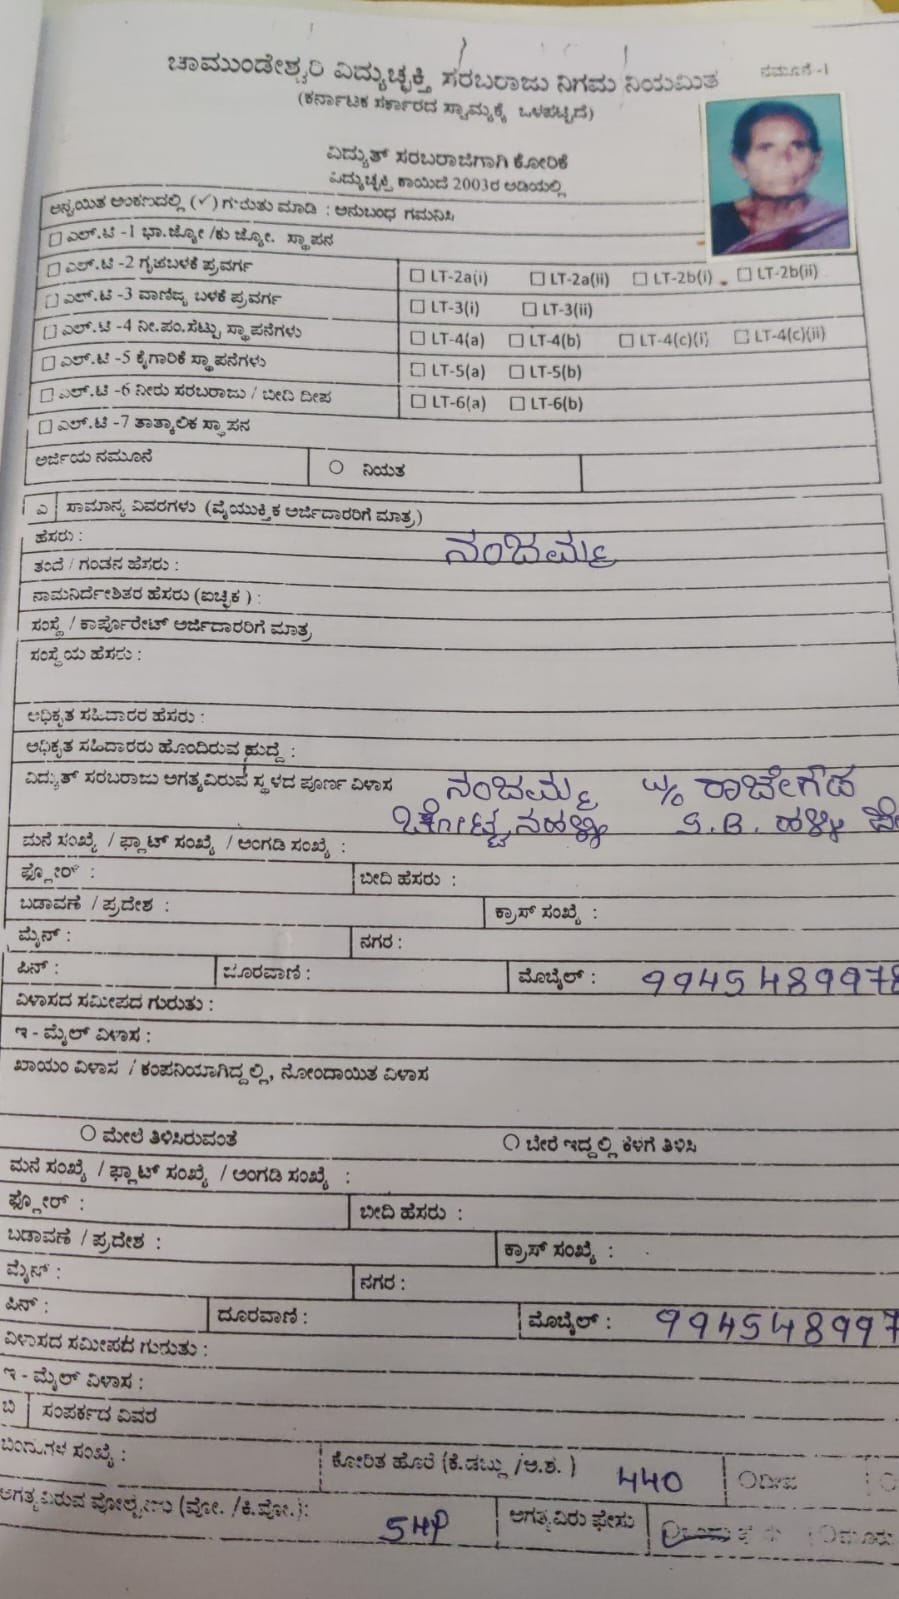 ಚಾಮುಂಡೇಶ್ವರಿ ವಿದ್ಯುಚ್ಛಕ್ತಿ ಸರಬರಾಜು ನಿಗಮ ನಿಯಮಿತ
ನಮೂನೆ -1
(ಕರ್ನಾಟಕ ಸರ್ಕಾರದ ಸ್ವಾಮ್ಯಕ್ಕೆ ಒಳಪಟ್ಟಿದೆ)
ವಿದ್ಯುತ್ ಸರಬರಾಜಿಗಾಗಿ ಕೋರಿಕೆ
ವಿದ್ಯುಚ್ಛಕ್ತಿ ಕಾಯಿದೆ 2003ರ ಅಡಿಯಲ್ಲಿ
ಅನ್ವಯಿತ ಅಂಕಣದಲ್ಲಿ (✓) ಗುರುತು ಮಾಡಿ : ಅನುಬಂಧ ಗಮನಿಸಿ
☐ ಎಲ್.ಟಿ -1 ಭಾ.ಜ್ಯೋ /ಕು ಜ್ಯೋ. ಸ್ಥಾಪನ
☐ ಎಲ್.ಟಿ -2 ಗೃಹಬಳಕೆ ಪ್ರವರ್ಗ ☐ LT-2a(i) ☐ LT-2a(ii) ☐ LT-2b(i) ☐ LT-2b(ii)
☐ ಎಲ್.ಟಿ -3 ವಾಣಿಜ್ಯ ಬಳಕೆ ಪ್ರವರ್ಗ ☐ LT-3(i) ☐ LT-3(ii)
☐ ಎಲ್.ಟಿ -4 ನೀ.ಪಂ.ಸೆಟ್ಟು ಸ್ಥಾಪನೆಗಳು ☐ LT-4(a) ☐ LT-4(b) ☐ LT-4(c)(i) ☐ LT-4(c)(ii)
☐ ಎಲ್.ಟಿ -5 ಕೈಗಾರಿಕೆ ಸ್ಥಾಪನೆಗಳು ☐ LT-5(a) ☐ LT-5(b)
☐ ಎಲ್.ಟಿ -6 ನೀರು ಸರಬರಾಜು / ಬೀದಿ ದೀಪ ☐ LT-6(a) ☐ LT-6(b)
☐ ಎಲ್.ಟಿ -7 ತಾತ್ಕಾಲಿಕ ಸ್ಥಾಪನ
ಅರ್ಜಿಯ ನಮೂನೆ ○ ನಿಯತ
ಎ ಸಾಮಾನ್ಯ ವಿವರಗಳು (ವೈಯುಕ್ತಿಕ ಅರ್ಜಿದಾರರಿಗೆ ಮಾತ್ರ)
ಹೆಸರು : ನಂಜಮ್ಮ
ತಂದೆ / ಗಂಡನ ಹೆಸರು :
ನಾಮನಿರ್ದೇಶಿತರ ಹೆಸರು (ಐಚ್ಛಿಕ ) :
ಸಂಸ್ಥೆ / ಕಾರ್ಪೊರೇಟ್ ಅರ್ಜಿದಾರರಿಗೆ ಮಾತ್ರ
ಸಂಸ್ಥೆಯ ಹೆಸರು :
ಅಧಿಕೃತ ಸಹಿದಾರರ ಹೆಸರು :
ಅಧಿಕೃತ ಸಹಿದಾರರು ಹೊಂದಿರುವ ಹುದ್ದೆ :
ವಿದ್ಯುತ್ ಸರಬರಾಜು ಅಗತ್ಯವಿರುವ ಸ್ಥಳದ ಪೂರ್ಣ ವಿಳಾಸ ನಂಜಮ್ಮ w/o ರಾಜೇಗೌಡ
S.B. ಹಳ್ಳಿ
ಮನೆ ಸಂಖ್ಯೆ / ಫ್ಲಾಟ್ ಸಂಖ್ಯೆ / ಅಂಗಡಿ ಸಂಖ್ಯೆ :
ಫ್ಲೋರ್ : ಬೀದಿ ಹೆಸರು :
ಬಡಾವಣೆ / ಪ್ರದೇಶ : ಕ್ರಾಸ್ ಸಂಖ್ಯೆ :
ಮೈನ್ : ನಗರ :
ಪಿನ್ : ದೂರವಾಣಿ : ಮೊಬೈಲ್ : 9945489978
ವಿಳಾಸದ ಸಮೀಪದ ಗುರುತು :
ಇ - ಮೈಲ್ ವಿಳಾಸ :
ಖಾಯಂ ವಿಳಾಸ / ಕಂಪನಿಯಾಗಿದ್ದಲ್ಲಿ, ನೋಂದಾಯಿತ ವಿಳಾಸ
○ ಮೇಲೆ ತಿಳಿಸಿರುವಂತೆ ○ ಬೇರೆ ಇದ್ದಲ್ಲಿ ಕೆಳಗೆ ತಿಳಿಸಿ
ಮನೆ ಸಂಖ್ಯೆ / ಫ್ಲಾಟ್ ಸಂಖ್ಯೆ / ಅಂಗಡಿ ಸಂಖ್ಯೆ :
ಫ್ಲೋರ್ : ಬೀದಿ ಹೆಸರು :
ಬಡಾವಣೆ / ಪ್ರದೇಶ : ಕ್ರಾಸ್ ಸಂಖ್ಯೆ :
ಮೈನ್ : ನಗರ :
ಪಿನ್ : ದೂರವಾಣಿ : ಮೊಬೈಲ್ : 994548997
ವಿಳಾಸದ ಸಮೀಪದ ಗುರುತು :
ಇ - ಮೈಲ್ ವಿಳಾಸ :
ಬಿ ಸಂಪರ್ಕದ ವಿವರ
ಬಿಂದುಗಳ ಸಂಖ್ಯೆ : ಕೋರಿತ ಹೊರೆ (ಕೆ.ಡಬ್ಲು /ಅ.ಶ. ) 440 ○ದೀಪ
ಅಗತ್ಯವಿರುವ ವೋಲ್ಟೇಜು (ವೋ. /ಕಿ.ವೋ.): 5HP ಅಗತ್ಯವಿರು ಫೇಸು ○ಮೂರು